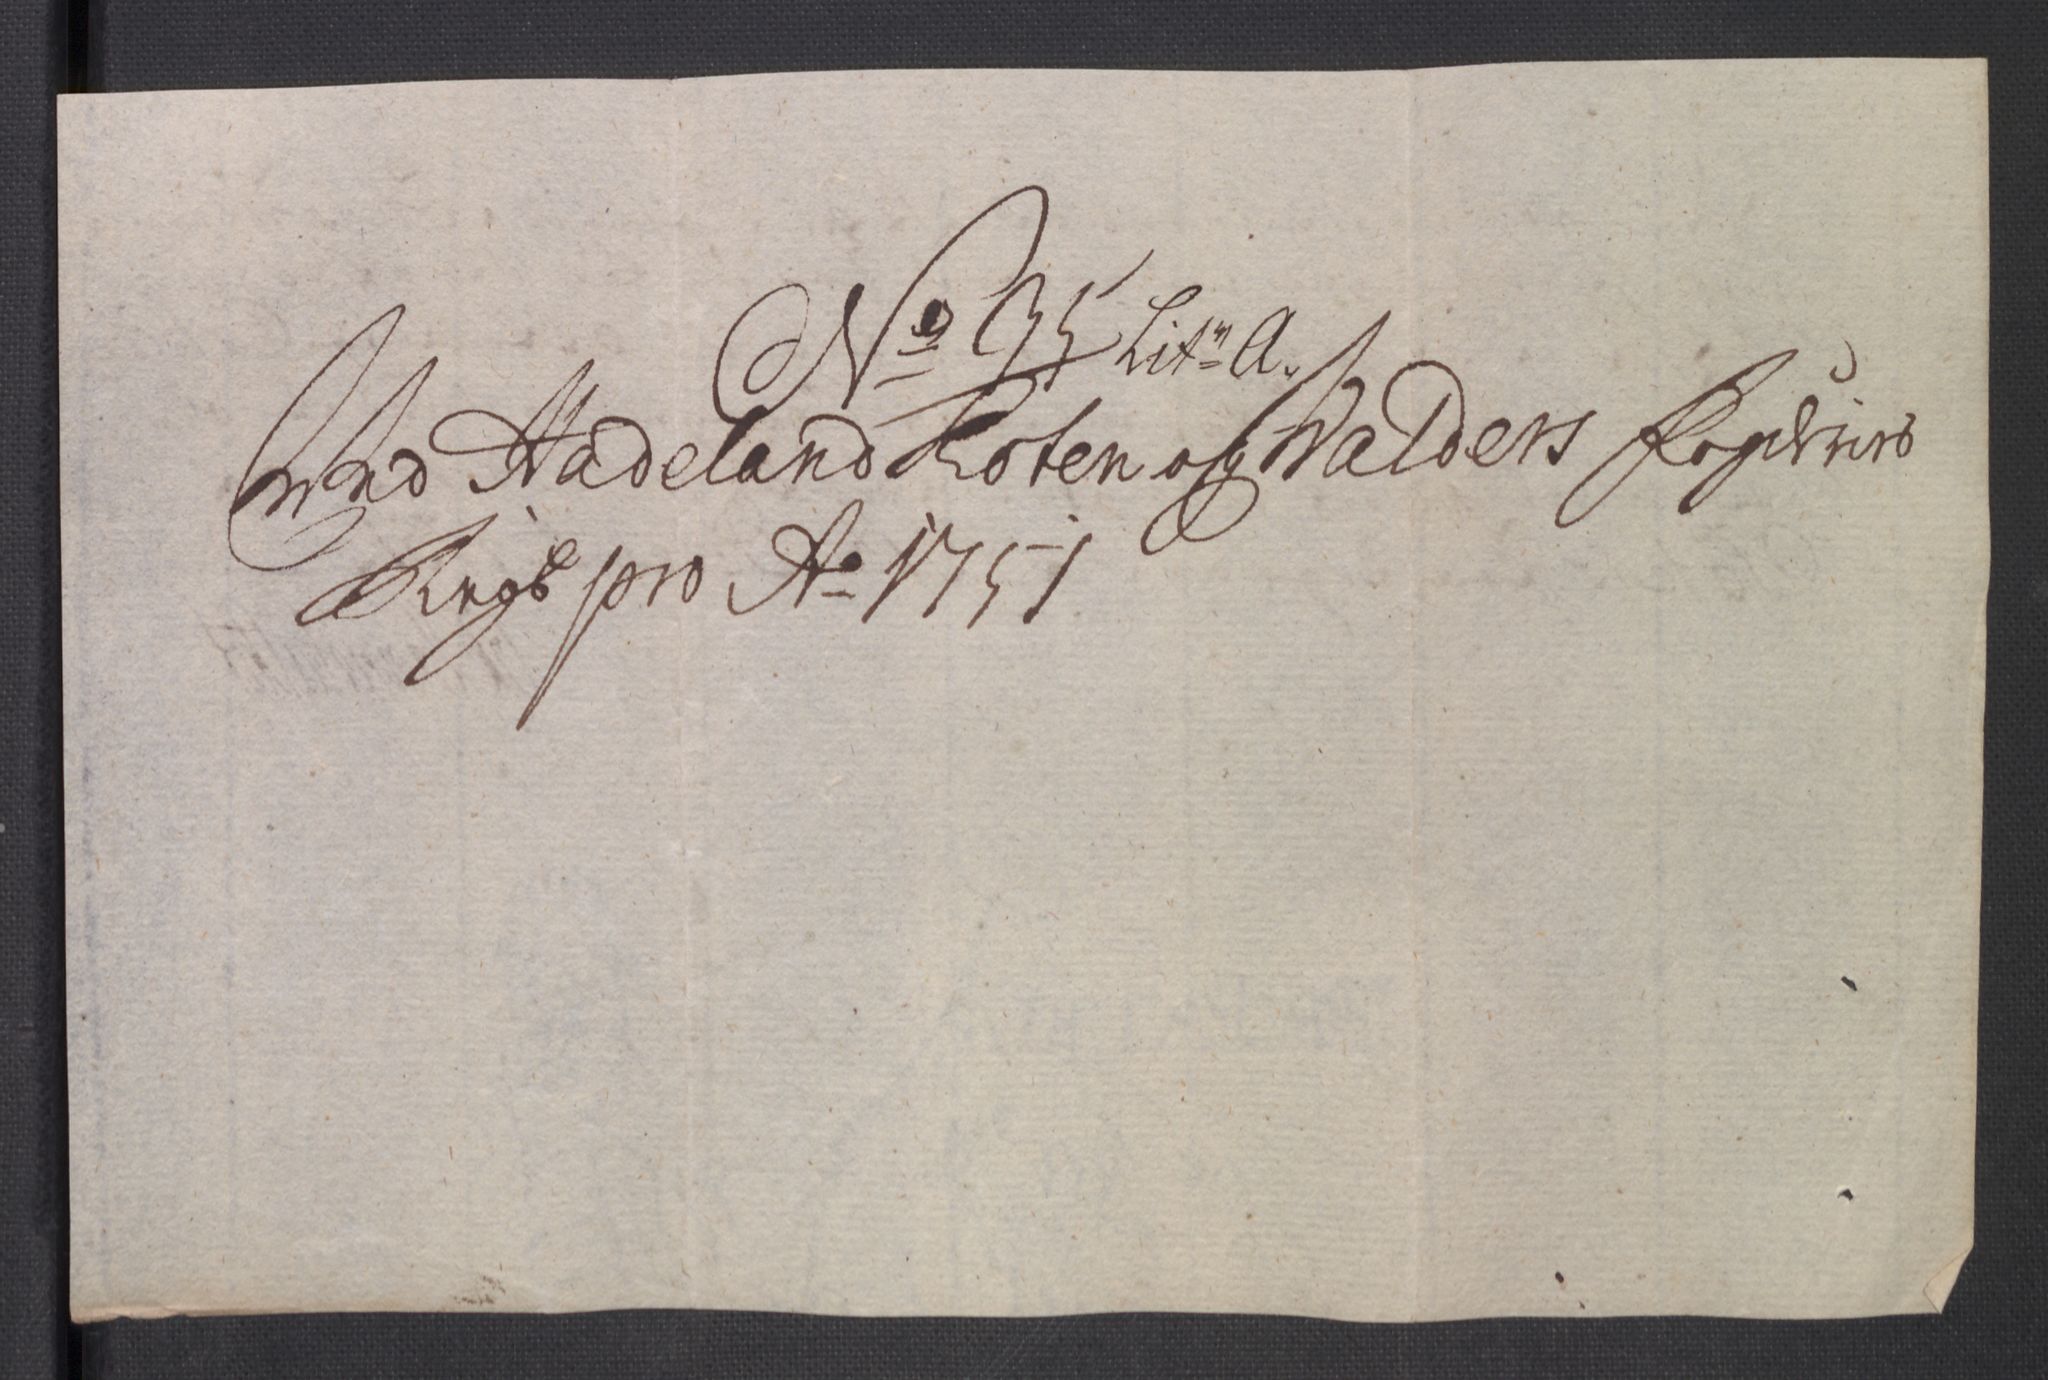 No 35 Litr A.
Wed Hadeland Toten og Walders Fogderies
Regsk pro Ao 1751